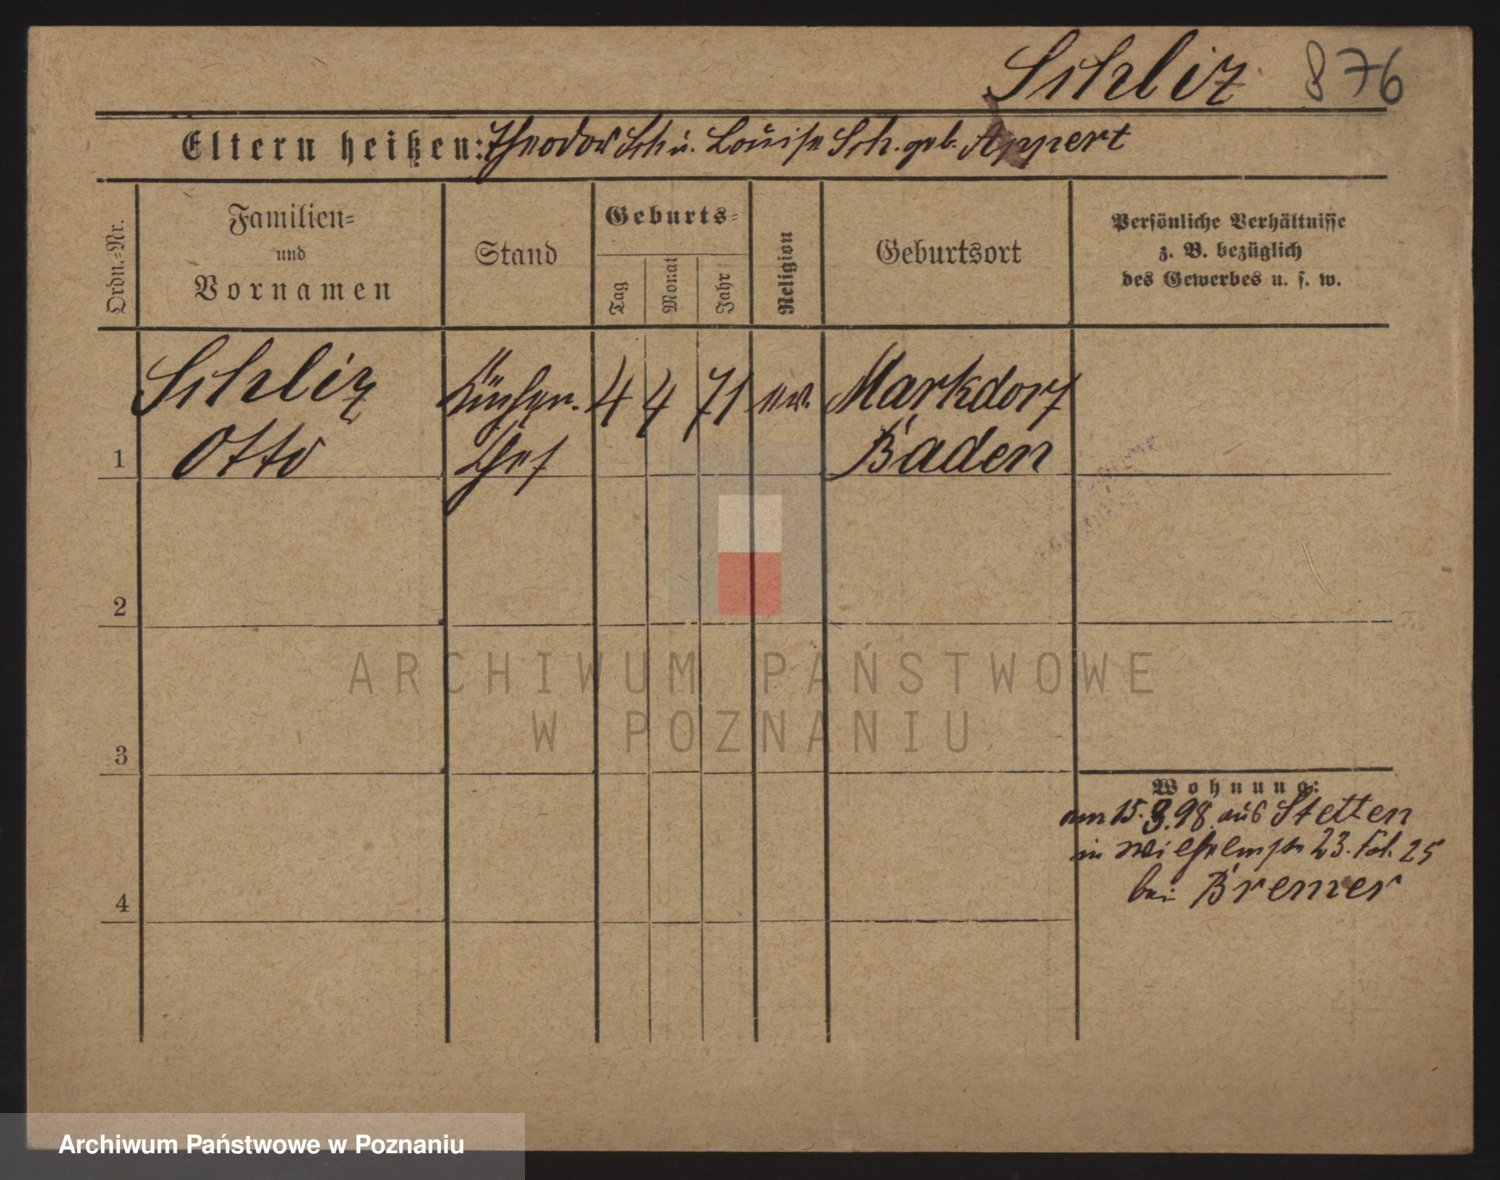 Schliz 876
Eltern heißen: Theodor Sch. u. Louise Sch. geb. Appert
Ordn.-Nr.
Familien-
und
Vornamen
Stand
Geburts-
Tag
Monat
Jahr
Religion
Geburtsort
Persönliche Verhältnisse
z. B. bezüglich
des Gewerbes u. s. w.
Schliz
Otto
Küchen-
Chef
4 4 71 ev. Markdorf
Baden
1
2
3
4
ARCHIWUM PAŃSTWOWE
W POZNANIU
Wohnung:
am 15.9.98 aus Stetten
in Wilhelmstr 23. Fol. 25
bei Bremer
Archiwum Państwowe w Poznaniu